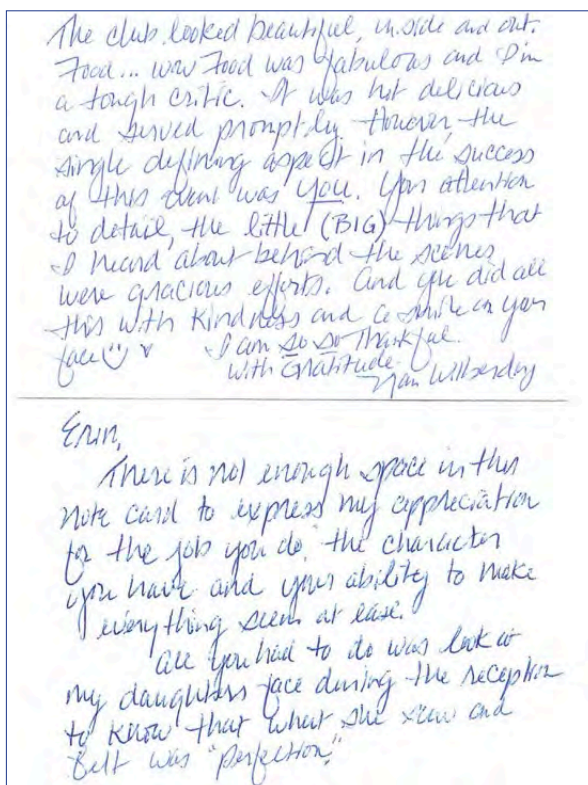 The club looked beautiful, inside and out.
Food... wow Food was fabulous and I'm
a tough critic. It was hot delicious
and served promptly. However, the
single defining aspect in the success
of this event was you. Your attention
to detail, the little (BIG) things that
I heard about behind the scenes
were gracious efforts. And you did all
this with kindness and a smile on your
face
I am so so thankful.
with Gratitude
Erin,
There is not enough space in this
note card to express my appreciation
for the job you do, the character
you have and your ability to make
everything seem at ease.
All you had to do was look at
my daughters face during the reception
to know that what she saw and
felt was "perfection."